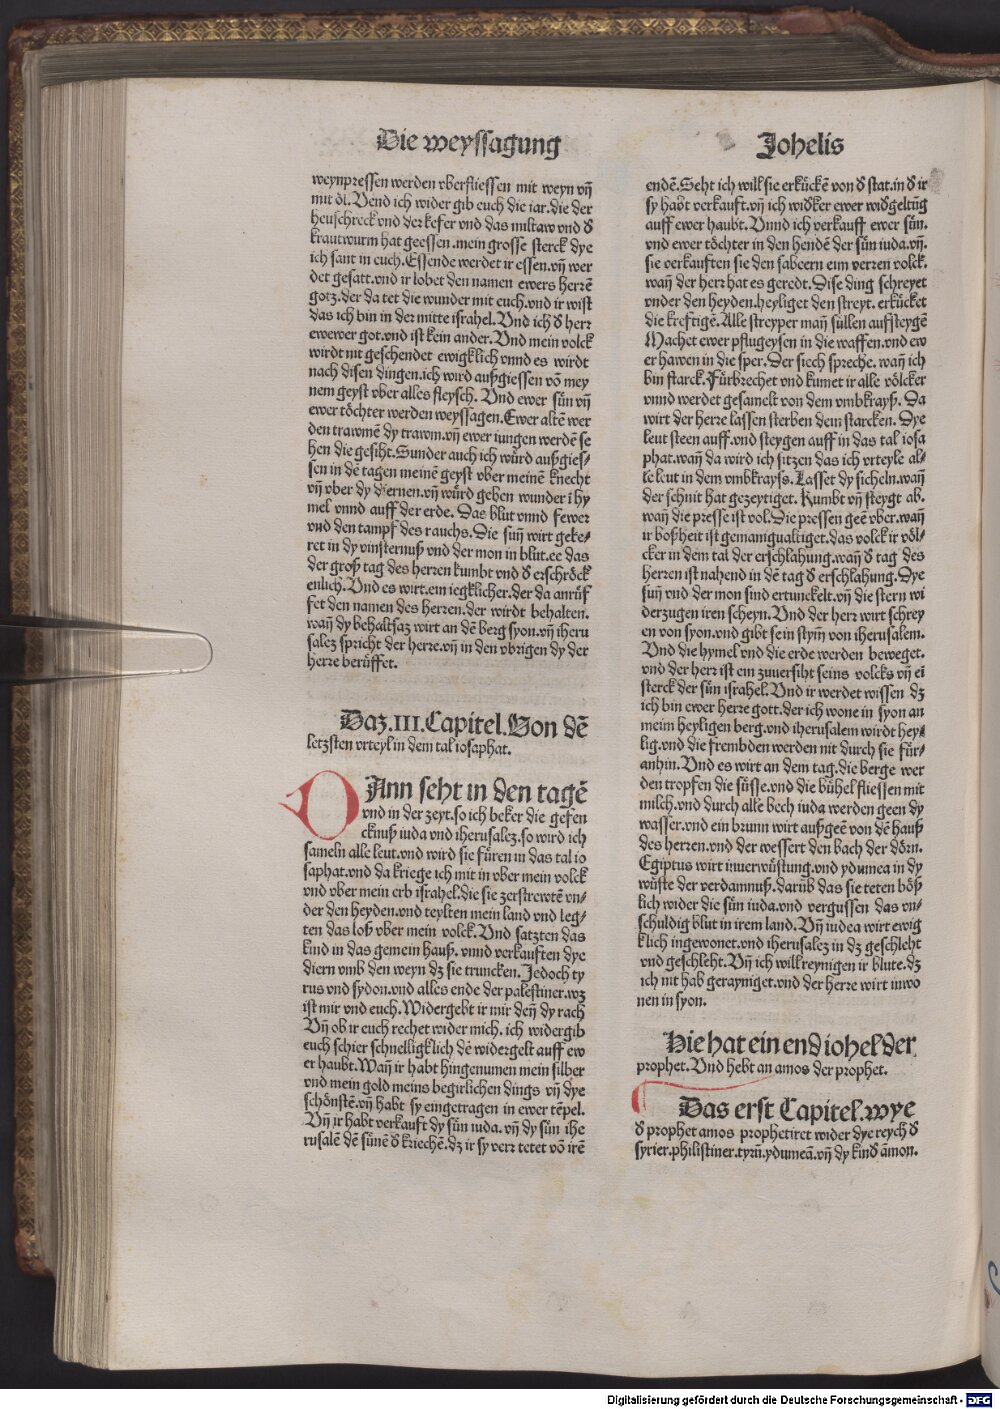 Die weyssagung
Johelis
weynpressen werden vberfliessen mit weyn vn̄
mit öl. Vend ich wider gib euch die iar. die der
heuschreck vnd der kefer vnd das miltaw vnd ď
krautwurm hat geessen. mein grosse sterck dye
ich sant in euch. Essende werdet ir essen. vn̄ wer
det gesatt. vnd ir lobet den namen ewers herrē
gotz. der da tet die wunder mit euch. vnd ir wist
das ich bin in der mitte israhel. Vnd ich ď herr
ewewer got. vnd ist kein ander. Vnd mein volck
wirdt nit geschendet ewigklich vnnd es wirdt
nach disen dingen. ich wird außgiessen vō mey
nem geyst vber alles fleysch. Vnd ewer sün vn̄
ewer töchter werden weyssagen. Ewer altē wer
den trawmē dy trawm. vn̄ ewer iungen werdē se
hen die gesiht. Sunder auch ich würd außgies-
sen in dē tagen meinē geyst vber meinē knecht
vn̄ vber dy diernen. vn̄ würd geben wunder ī hy
mel vnnd auff der erde. Das blut vnnd fewer
vnd den tampf des rauchs. Die sun̄ wirt geke-
ret in dy vinsternuß vnd der mon in blut. ee das
der groß tag des herren kumbt vnd ď erschröck
enlich. Vnd es wirt. ein iegklicher. der da anrüf
fet den namen des herren. der wirdt behalten.
wan̄ dy behaltsaz wirt an dē berg syon. vn̄ iheru
salez spricht der herre. vn̄ in den vbrigen dy der
herre berüffet.
Daz. III. Capitel. Von dē
letzsten vrteyl in dem tal iosaphat.
Ann seht in den tagē
vnd in der zeyt. so ich beker die gefen
cknuß iuda vnd iherusalez. so wird ich
sameln alle leut. vnd wird sie füren in das tal io
saphat. vnd da kriege ich mit in vber mein volck
vnd vber mein erb israhel. die sie zerstrewtē vn-
der den heyden. vnd teylten mein land vnd leg-
ten das loß vber mein volck. Vnd satzten das
kind in das gemein hauß. vnnd verkauften dye
diern vmb den weyn dz sie truncken. Jedoch ty
rus vnd sydon. vnd alles ende der palestiner. wz
ist mir vnd euch. Widergebt ir mir den̄ dy rach
Vn̄ ob ir euch rechet wider mich. ich widergib
euch schier schnelligklich dē widergelt auff ew
er haubt. Wan̄ ir habt hingenumen mein silber
vnd mein gold meins begirlichen dings vn̄ dye
schönstē. vn̄ habt sy eingetragen in ewer tēpel.
Vn̄ ir habt verkauft dy sün iuda. vn̄ dy sün ihe
rusalē dē sünē ď kriechē. dz ir sy verr tetet vō irē
endē. Seht ich will sie erkückē von ď stat. in ď ir
sy habt verkauft. vn̄ ich widker ewer widgeltūg
auff ewer haubt. Vnnd ich verkauff ewer sün.
vnd ewer töchter in den hendē der sün iuda. vn̄.
sie verkauften sie den sabeern eim verren volck.
wan̄ der herr hat es geredt. Dise ding schreyet
vnder den heyden. heyliget den streyt. erkücket
die kreftigē. Alle streyper man̄ süllen aufsteygē
Machet ewer pflugeysen in die waffen. vnd ew
er hawen in die sper. Der siech spreche. wan̄ ich
bin starck. Fürbrechet vnd kumet ir alle völcker
vnnd werdet gesamelt von dem vmbkrayß. Da
wirt der herre lassen sterben dem starcken. Dye
leut steen auff. vnd steygen auff in das tal iosa
phat. wan̄ da wird ich sitzen das ich vrteyle al-
le leut in dem vmbkrayß. Lasset dy sicheln. wan̄
der schnit hat gezeytiget. Kumbt vn̄ steygt ab.
wan̄ die presse ist vol. Die pressen geē vber. wan̄
ir boßheit ist gemanigualtiget. das volck ir völ-
cker in dem tal der erschlahung. wan̄ ď tag des
herren ist nahend in dē tag ď erschlahung. Dye
sun̄ vnd der mon sind ertunckelt. vn̄ die stern wi
derzugen iren scheyn. Vnd der herr wirt schrey
en von syon. vnd gibt sein stym̄ von iherusalem.
Vnd die hymel vnd die erde werden beweget.
vnd der herr ist ein zuuersiht seins volcks vn̄ eī
sterck der sün israhel. Vnd ir werdet wissen dz
ich bin ewer herre gott. der ich wone in syon an
meim heyligen berg. vnd iherusalem wirdt hey-
lig. vnd die frembden werden nit durch sie für-
anhin. Vnd es wirt an dem tag. die berge wer
den tropfen die süsse. vnd die bühel fliessen mit
milch. vnd durch alle bech iuda werden geen dy
wasser. vnd ein brunn wirt außgeē von dē hauß
des herzen. vnd der wessert den bach der dörn.
Egiptus wirt in uerwüstung. vnd ydumea in dy
wüste der verdamnuß. darūb das sie teten böß
lich wider die sün iuda. vnd vergussen das vn-
schuldig blut in irem land. Vn̄ iudea wirt ewig
klich ingewonet. vnd iherusalez in dz geschleht
vnd geschleht. Vn̄ ich will reynigen ir blute. dz
ich nit hab gerayniget. vnd der herre wirt inwo
nen in syon.
Hie hat ein end iohel der
prophet. Vnd hebt an amos der prophet.
Das erst Capitel. wye
ď prophet amos prophetiret wider dye reych ď
syrier. philistiner. tyrū. ydumeā. vn̄ dy kind āmon.
Digitalisierung gefördert durch die Deutsche Forschungsgemeinschaft - DFG